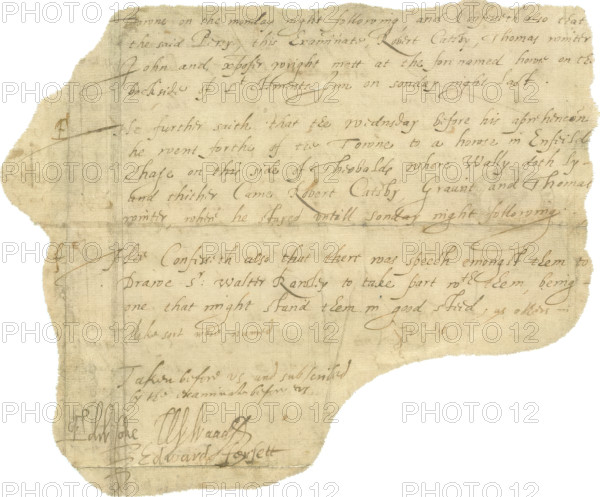 Towne on the monday night following and Confesseth also that
the said Percy, this Examinate Robert Catesby, Thomas winter
John and xpofer wright mett at the forenamed howse on the
backside of St Clements Inn on sonday night last.
he further saith that the wednesday before his apprehencon
he went forthe of the Towne to a howse in Enfeild
Chase on this side of Theobalds where Wally doth ly
and thither Came Robert Catesby Graunt and Thomas
winter, where he stayed untill sonday night following.
He Confesseth also that there was speech emongst them to
Drawe Sr Walter Rawley to take part wth them, being
one that might stand them in good sted, as others
Taken before us and subscribed
by the examinate before us.
Edw Coke W Waad
Edward Forsett
PHOTO 12